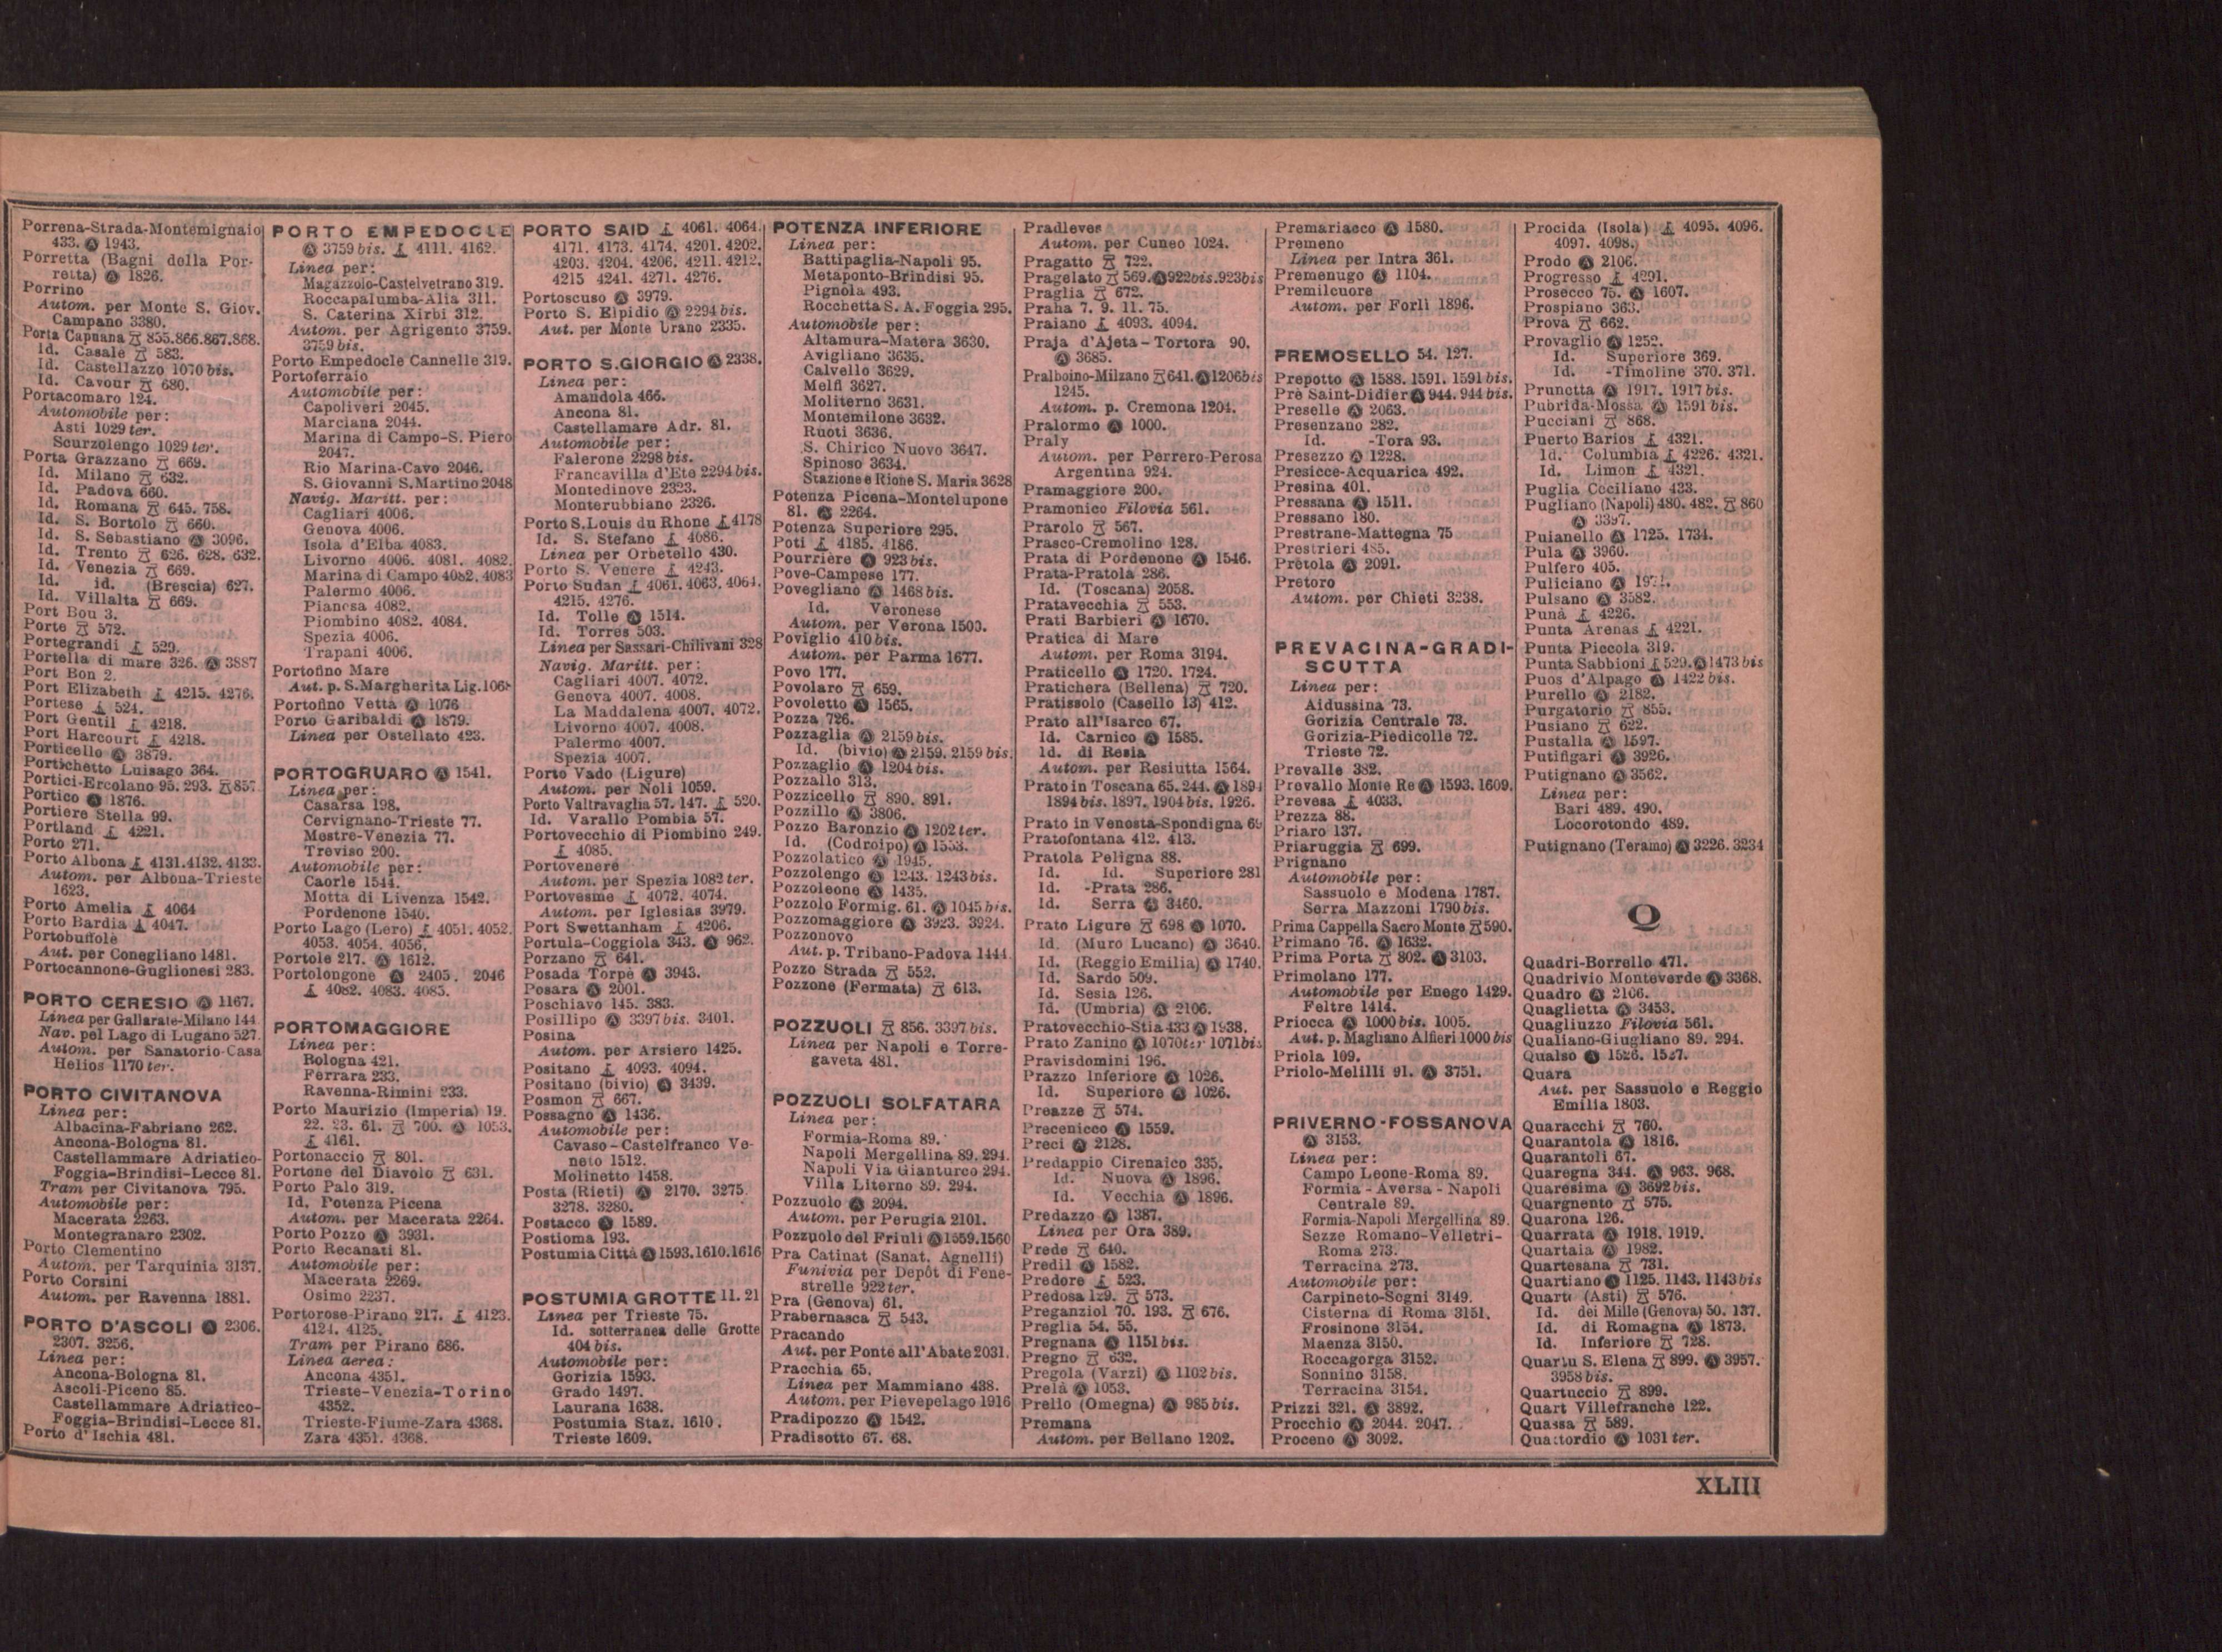 Porrena-Strada-Montemignaio
433. Ⓐ 1943.
Porretta (Bagni della Por-
retta) Ⓐ 1826.
Porrino
Autom. per Monte S. Giov.
Campano 3380.
Porta Capuana 855.866.867.868.
Id. Casale 583.
Id. Castellazzo 1070 bis.
Id. Cavour 680.
Portacomaro 124.
Automobile per:
Asti 1029 ter.
Scurzolengo 1029 ter.
Porta Grazzano 669.
Id. Milano 632.
Id. Padova 660.
Id. Romana 645. 758.
Id. S. Bortolo 660.
Id. S. Sebastiano Ⓐ 3096.
Id. Trento 626. 628. 632.
Id. Venezia 669.
Id. id. (Brescia) 627.
Id. Villalta 669.
Port Bou 3.
Porte 572.
Portegrandi 529.
Portella di mare 326. Ⓐ 3887
Port Bon 2.
Port Elizabeth 4215. 4276.
Portese 524.
Port Gentil 4218.
Port Harcourt 4218.
Porticello Ⓐ 3879.
Portichetto Luisago 364.
Portici-Ercolano 95. 293. 857
Portico Ⓐ 1876.
Portiere Stella 99.
Portland 4221.
Porto 271.
Porto Albona 4131.4132. 4133.
Autom. per Albona-Trieste
1623.
Porto Amelia 4064
Porto Bardia 4047.
Portobuffolè
Aut. per Conegliano 1481.
Portocannone-Guglionesi 283.
PORTO CERESIO Ⓐ 1167.
Linea per Gallarate-Milano 144
Nav. pel Lago di Lugano 527.
Autom. per Sanatorio-Casa
Helios 1170 ter.
PORTO CIVITANOVA
Linea per:
Albacina-Fabriano 262.
Ancona-Bologna 81.
Castellammare Adriatico-
Foggia-Brindisi-Lecce 81.
Tram per Civitanova 795.
Automobile per:
Macerata 2263.
Montegranaro 2302.
Porto Clementino
Autom. per Tarquinia 3137.
Porto Corsini
Autom. per Ravenna 1881.
PORTO D'ASCOLI Ⓐ 2306.
2307. 3256.
Linea per:
Ancona-Bologna 81.
Ascoli-Piceno 85.
Castellammare Adriatico-
Foggia-Brindisi-Lecce 81.
Porto d'Ischia 481.
PORTO EMPEDOCLE
Ⓐ 3759 bis. 4111. 4162.
Linea per:
Magazzolo-Castelvetrano 319.
Roccapalumba-Alia 311.
S. Caterina Xirbi 312.
Autom. per Agrigento 3759.
3759 bis.
Porto Empedocle Cannelle 319.
Portoferraio
Automobile per:
Capoliveri 2045.
Marciana 2044.
Marina di Campo-S. Piero
2047.
Rio Marina-Cavo 2046.
S. Giovanni S.Martino 2048
Navig. Maritt. per:
Cagliari 4006.
Genova 4006.
Isola d'Elba 4083.
Livorno 4006. 4081. 4082.
Marina di Campo 4082. 4083
Palermo 4006.
Pianosa 4082.
Piombino 4082. 4084.
Spezia 4006.
Trapani 4006.
Portofino Mare
Aut. p. S.Margherita Lig.
Portofino Vetta Ⓐ 1076
Porto Garibaldi Ⓐ 1879.
Linea per Ostellato 423.
PORTOGRUARO Ⓐ 1541.
Linea per:
Casarsa 198.
Cervignano-Trieste 77.
Mestre-Venezia 77.
Treviso 200.
Automobile per:
Caorle 1544.
Motta di Livenza 1542.
Pordenone 1540.
Porto Lago (Lero) 4051. 4052.
4053. 4054. 4056.
Portole 217. Ⓐ 1612.
Portolongone Ⓐ 2405. 2046
4082. 4083. 4085.
PORTOMAGGIORE
Linea per:
Bologna 421.
Ferrara 233.
Ravenna-Rimini 233.
Porto Maurizio (Imperia) 19.
22. 23. 61. 700. Ⓐ 1053.
4161.
Portonaccio 801.
Portone del Diavolo 631.
Porto Palo 319.
Id. Potenza Picena
Autom. per Macerata 2264.
Porto Pozzo Ⓐ 3931.
Porto Recanati 81.
Automobile per:
Macerata 2269.
Osimo 2237.
Portorose-Pirano 217. 4123.
4124. 4125.
Tram per Pirano 686.
Linea aerea:
Ancona 4351.
Trieste-Venezia-Torino
4352.
Trieste-Fiume-Zara 4368.
Zara 4351. 4368.
PORTO SAID 4061. 4064.
4171. 4173. 4174. 4201. 4202.
4203. 4204. 4206. 4211. 4212.
4215 4241. 4271. 4276.
Portoscuso Ⓐ 3979.
Porto S. Elpidio Ⓐ 2294 bis.
Aut. per Monte Urano 2335.
PORTO S.GIORGIO Ⓐ 2338.
Linea per:
Amandola 466.
Ancona 81.
Castellamare Adr. 81.
Automobile per:
Falerone 2298 bis.
Francavilla d'Ete 2294 bis.
Montedinove 2323.
Monterubbiano 2326.
Porto S.Louis du Rhone 4178
Id. S. Stefano 4086.
Linea per Orbetello 430.
Porto S. Venere 4243.
Porto Sudan 4061. 4063. 4064.
4215. 4276.
Id. Tolle Ⓐ 1514.
Id. Torres 503.
Linea per Sassari-Chilivani 328
Navig. Maritt. per:
Cagliari 4007. 4072.
Genova 4007. 4008.
La Maddalena 4007. 4072.
Livorno 4007. 4008.
Palermo 4007.
Spezia 4007.
Porto Vado (Ligure)
Autom. per Noli 1059.
Porto Valtravaglia 57. 147. 520.
Id. Varallo Pombia 57.
Portovecchio di Piombino 249.
4085.
Portovenere
Autom. per Spezia 1082 ter.
Portovesme 4072. 4074.
Autom. per Iglesias 3979.
Port Swettanham 4206.
Portula-Coggiola 343. Ⓐ 962.
Porzano 641.
Posada Torpè Ⓐ 3943.
Posara Ⓐ 2001.
Poschiavo 145. 383.
Posillipo Ⓐ 3397 bis. 3401.
Posina
Autom. per Arsiero 1425.
Positano 4093. 4094.
Positano (bivio) Ⓐ 3439.
Posmon 667.
Possagno Ⓐ 1436.
Automobile per:
Cavaso-Castelfranco Ve-
neto 1512.
Molinetto 1458.
Posta (Rieti) Ⓐ 2170. 3275.
3278. 3280.
Postacco Ⓐ 1589.
Postioma 193.
Postumia Città Ⓐ 1593.1610.1616
POSTUMIA GROTTE 11. 21
Linea per Trieste 75.
Id. sotterranea delle Grotte
404 bis.
Automobile per:
Gorizia 1593.
Grado 1497.
Laurana 1638.
Postumia Staz. 1610.
Trieste 1609.
POTENZA INFERIORE
Linea per:
Battipaglia-Napoli 95.
Metaponto-Brindisi 95.
Pignola 493.
Rocchetta S. A. Foggia 295.
Automobile per:
Altamura-Matera 3630.
Avigliano 3635.
Calvello 3629.
Melfi 3627.
Moliterno 3631.
Montemilone 3632.
Ruoti 3636.
S. Chirico Nuovo 3647.
Spinoso 3634.
Stazione e Rione S. Maria 3628
Potenza Picena-Montelupone
81. Ⓐ 2264.
Potenza Superiore 295.
Poti 4185. 4186.
Pourrière Ⓐ 923 bis.
Pove-Campese 177.
Povegliano Ⓐ 1468 bis.
Id. Veronese
Autom. per Verona 1503.
Poviglio 410 bis.
Autom. per Parma 1677.
Povo 177.
Povolaro 659.
Povoletto Ⓐ 1565.
Pozza 726.
Pozzaglia Ⓐ 2159 bis.
Id. (bivio) Ⓐ 2159. 2159 bis.
Pozzaglio Ⓐ 1204 bis.
Pozzallo 313.
Pozzicello 890. 891.
Pozzillo Ⓐ 3806.
Pozzo Baronzio Ⓐ 1202 ter.
Id. (Codroipo) Ⓐ 1553.
Pozzolatico Ⓐ 1945.
Pozzolengo Ⓐ 1243. 1243 bis.
Pozzoleone Ⓐ 1435.
Pozzolo Formig. 61. Ⓐ 1045 bis.
Pozzomaggiore Ⓐ 3923. 3924.
Pozzonovo
Aut. p. Tribano-Padova 1444.
Pozzo Strada 552.
Pozzone (Fermata) 613.
POZZUOLI 856. 3397 bis.
Linea per Napoli e Torre-
gaveta 481.
POZZUOLI SOLFATARA
Linea per:
Formia-Roma 89.
Napoli Mergellina 89. 294.
Napoli Via Gianturco 294.
Villa Literno 89. 294.
Pozzuolo Ⓐ 2094.
Autom. per Perugia 2101.
Pozzuolo del Friuli Ⓐ 1559.1560
Pra Catinat (Sanat. Agnelli)
Funivia per Depôt di Fene-
strelle 922 ter.
Pra (Genova) 61.
Prabernasca 543.
Pracando
Aut. per Ponte all'Abate 2031.
Pracchia 65.
Linea per Mammiano 438.
Autom. per Pievepelago 1916
Pradipozzo Ⓐ 1542.
Pradisotto 67. 68.
Pradleves
Autom. per Cuneo 1024.
Pragatto 722.
Pragelato 569. Ⓐ 922 bis. 923 bis
Praglia 672.
Praha 7. 9. 11. 75.
Praiano 4093. 4094.
Praja d'Ajeta-Tortora 90.
Ⓐ 3685.
Pralboino-Milzano 641. Ⓐ 1206 bis
1245.
Autom. p. Cremona 1204.
Pralormo Ⓐ 1000.
Praly
Autom. per Perrero-Perosa
Argentina 924.
Pramaggiore 200.
Pramonico Filovia 561.
Prarolo 567.
Prasco-Cremolino 128.
Prata di Pordenone Ⓐ 1546.
Prata-Pratola 286.
Id. (Toscana) 2058.
Pratavecchia 553.
Prati Barbieri Ⓐ 1670.
Pratica di Mare
Autom. per Roma 3194.
Praticello Ⓐ 1720. 1724.
Pratichera (Bellena) 720.
Pratissolo (Casello 13) 412.
Prato all'Isarco 67.
Id. Carnico Ⓐ 1585.
Id. di Resia
Autom. per Resiutta 1564.
Prato in Toscana 65. 244. Ⓐ 1894
1894 bis. 1897. 1904 bis. 1926.
Prato in Venosta-Spondigna
Pratofontana 412. 413.
Pratola Peligna 88.
Id. Id. Superiore 281
Id. -Prata 286.
Id. Serra Ⓐ 3460.
Prato Ligure 698 Ⓐ 1070.
Id. (Muro Lucano) Ⓐ 3640.
Id. (Reggio Emilia) Ⓐ 1740.
Id. Sardo 509.
Id. Sesia 126.
Id. (Umbria) Ⓐ 2106.
Pratovecchio-Stia 433 Ⓐ 1938.
Prato Zanino Ⓐ 1070 ter 1071 bis
Pravisdomini 196.
Prazzo Inferiore Ⓐ 1026.
Id. Superiore Ⓐ 1026.
Preazze 574.
Precenicco Ⓐ 1559.
Preci Ⓐ 2128.
Predappio Cirenaico 335.
Id. Nuova Ⓐ 1896.
Id. Vecchia Ⓐ 1896.
Predazzo Ⓐ 1387.
Linea per Ora 389.
Prede 640.
Predil Ⓐ 1582.
Predore 523.
Predosa 129. 573.
Preganziol 70. 193. 676.
Preglia 54. 55.
Pregnana Ⓐ 1151 bis.
Pregno 632.
Pregola (Varzi) Ⓐ 1102 bis.
Prelà Ⓐ 1053.
Prello (Omegna) Ⓐ 985 bis.
Premana
Autom. per Bellano 1202.
Premariacco Ⓐ 1580.
Premeno
Linea per Intra 361.
Premenugo Ⓐ 1104.
Premilcuore
Autom. per Forlì 1896.
PREMOSELLO 54. 127.
Prepotto Ⓐ 1588. 1591. 1591 bis.
Prè Saint-Didier Ⓐ 944. 944 bis.
Preselle Ⓐ 2063.
Presenzano 282.
Id. -Tora 93.
Presezzo Ⓐ 1228.
Presicce-Acquarica 492.
Presina 401.
Pressana Ⓐ 1511.
Pressano 180.
Prestrane-Mattegna 75
Prestrieri 485.
Pretola Ⓐ 2091.
Pretoro
Autom. per Chieti 3238.
PREVACINA-GRADI-
SCUTTA
Linea per:
Aidussina 73.
Gorizia Centrale 73.
Gorizia-Piedicolle 72.
Trieste 72.
Prevalle 382.
Prevallo Monte Re Ⓐ 1593. 1609.
Prevesa 4033.
Prezza 88.
Priaro 137.
Priaruggia 699.
Prignano
Automobile per:
Sassuolo e Modena 1787.
Serra Mazzoni 1790 bis.
Prima Cappella Sacro Monte 590.
Primano 76. Ⓐ 1632.
Prima Porta 802. Ⓐ 3103.
Primolano 177.
Automobile per Enego 1429.
Feltre 1414.
Priocca Ⓐ 1000 bis. 1005.
Aut. p. Magliano Alfieri 1000 bis
Priola 109.
Priolo-Melilli 91. Ⓐ 3751.
PRIVERNO-FOSSANOVA
Ⓐ 3153.
Linea per:
Campo Leone-Roma 89.
Formia-Aversa-Napoli
Centrale 89.
Formia-Napoli Mergellina 89.
Sezze Romano-Velletri-
Roma 273.
Terracina 273.
Automobile per:
Carpineto-Segni 3149.
Cisterna di Roma 3151.
Frosinone 3154.
Maenza 3150.
Roccagorga 3152.
Sonnino 3158.
Terracina 3154.
Prizzi 321. Ⓐ 3892.
Procchio Ⓐ 2044. 2047.
Proceno Ⓐ 3092.
Procida (Isola) 4095. 4096.
4097. 4098.
Prodo Ⓐ 2106.
Progresso 4291.
Prosecco 75. Ⓐ 1607.
Prospiano 363.
Prova 662.
Provaglio Ⓐ 1252.
Id. Superiore 369.
Id. -Timoline 370. 371.
Prunetta Ⓐ 1917. 1917 bis.
Pubrida-Mossa Ⓐ 1591 bis.
Pucciani 868.
Puerto Barios 4321.
Id. Columbia 4226. 4321.
Id. Limon 4321.
Puglia Ceciliano 433.
Pugliano (Napoli) 480. 482. 860
Ⓐ 3397.
Puianello Ⓐ 1725. 1734.
Pula Ⓐ 3960.
Pulfero 405.
Puliciano Ⓐ
Pulsano Ⓐ 3582.
Punà 4226.
Punta Arenas 4221.
Punta Piccola 319.
Punta Sabbioni 529. Ⓐ 1473 bis
Puos d'Alpago Ⓐ 1422 bis.
Purello Ⓐ 2182.
Purgatorio 855.
Pusiano 622.
Pustalla Ⓐ 1597.
Putifigari Ⓐ 3926.
Putignano Ⓐ 3562.
Linea per:
Bari 489. 490.
Locorotondo 489.
Putignano (Teramo) Ⓐ 3226. 3234
Q
Quadri-Borrello 471.
Quadrivio Monteverde Ⓐ 3368.
Quadro Ⓐ 2106.
Quaglietta Ⓐ 3453.
Quagliuzzo Filovia 561.
Qualiano-Giugliano 89. 294.
Qualso Ⓐ 1526. 1527.
Quara
Aut. per Sassuolo e Reggio
Emilia 1803.
Quaracchi 760.
Quarantola Ⓐ 1816.
Quarantoli 67.
Quaregna 344. Ⓐ 963. 968.
Quaresima Ⓐ 3692 bis.
Quargnento 575.
Quarona 126.
Quarrata Ⓐ 1918. 1919.
Quartaia Ⓐ 1982.
Quartesana 731.
Quartiano Ⓐ 1125. 1143. 1143 bis
Quarto (Asti) 576.
Id. dei Mille (Genova) 50. 137.
Id. di Romagna Ⓐ 1873.
Id. Inferiore 728.
Quartu S. Elena 899. Ⓐ 3957.
3958 bis.
Quartuccio 899.
Quart Villefranche 122.
Quassa 589.
Quattordio Ⓐ 1031 ter.
XLIII